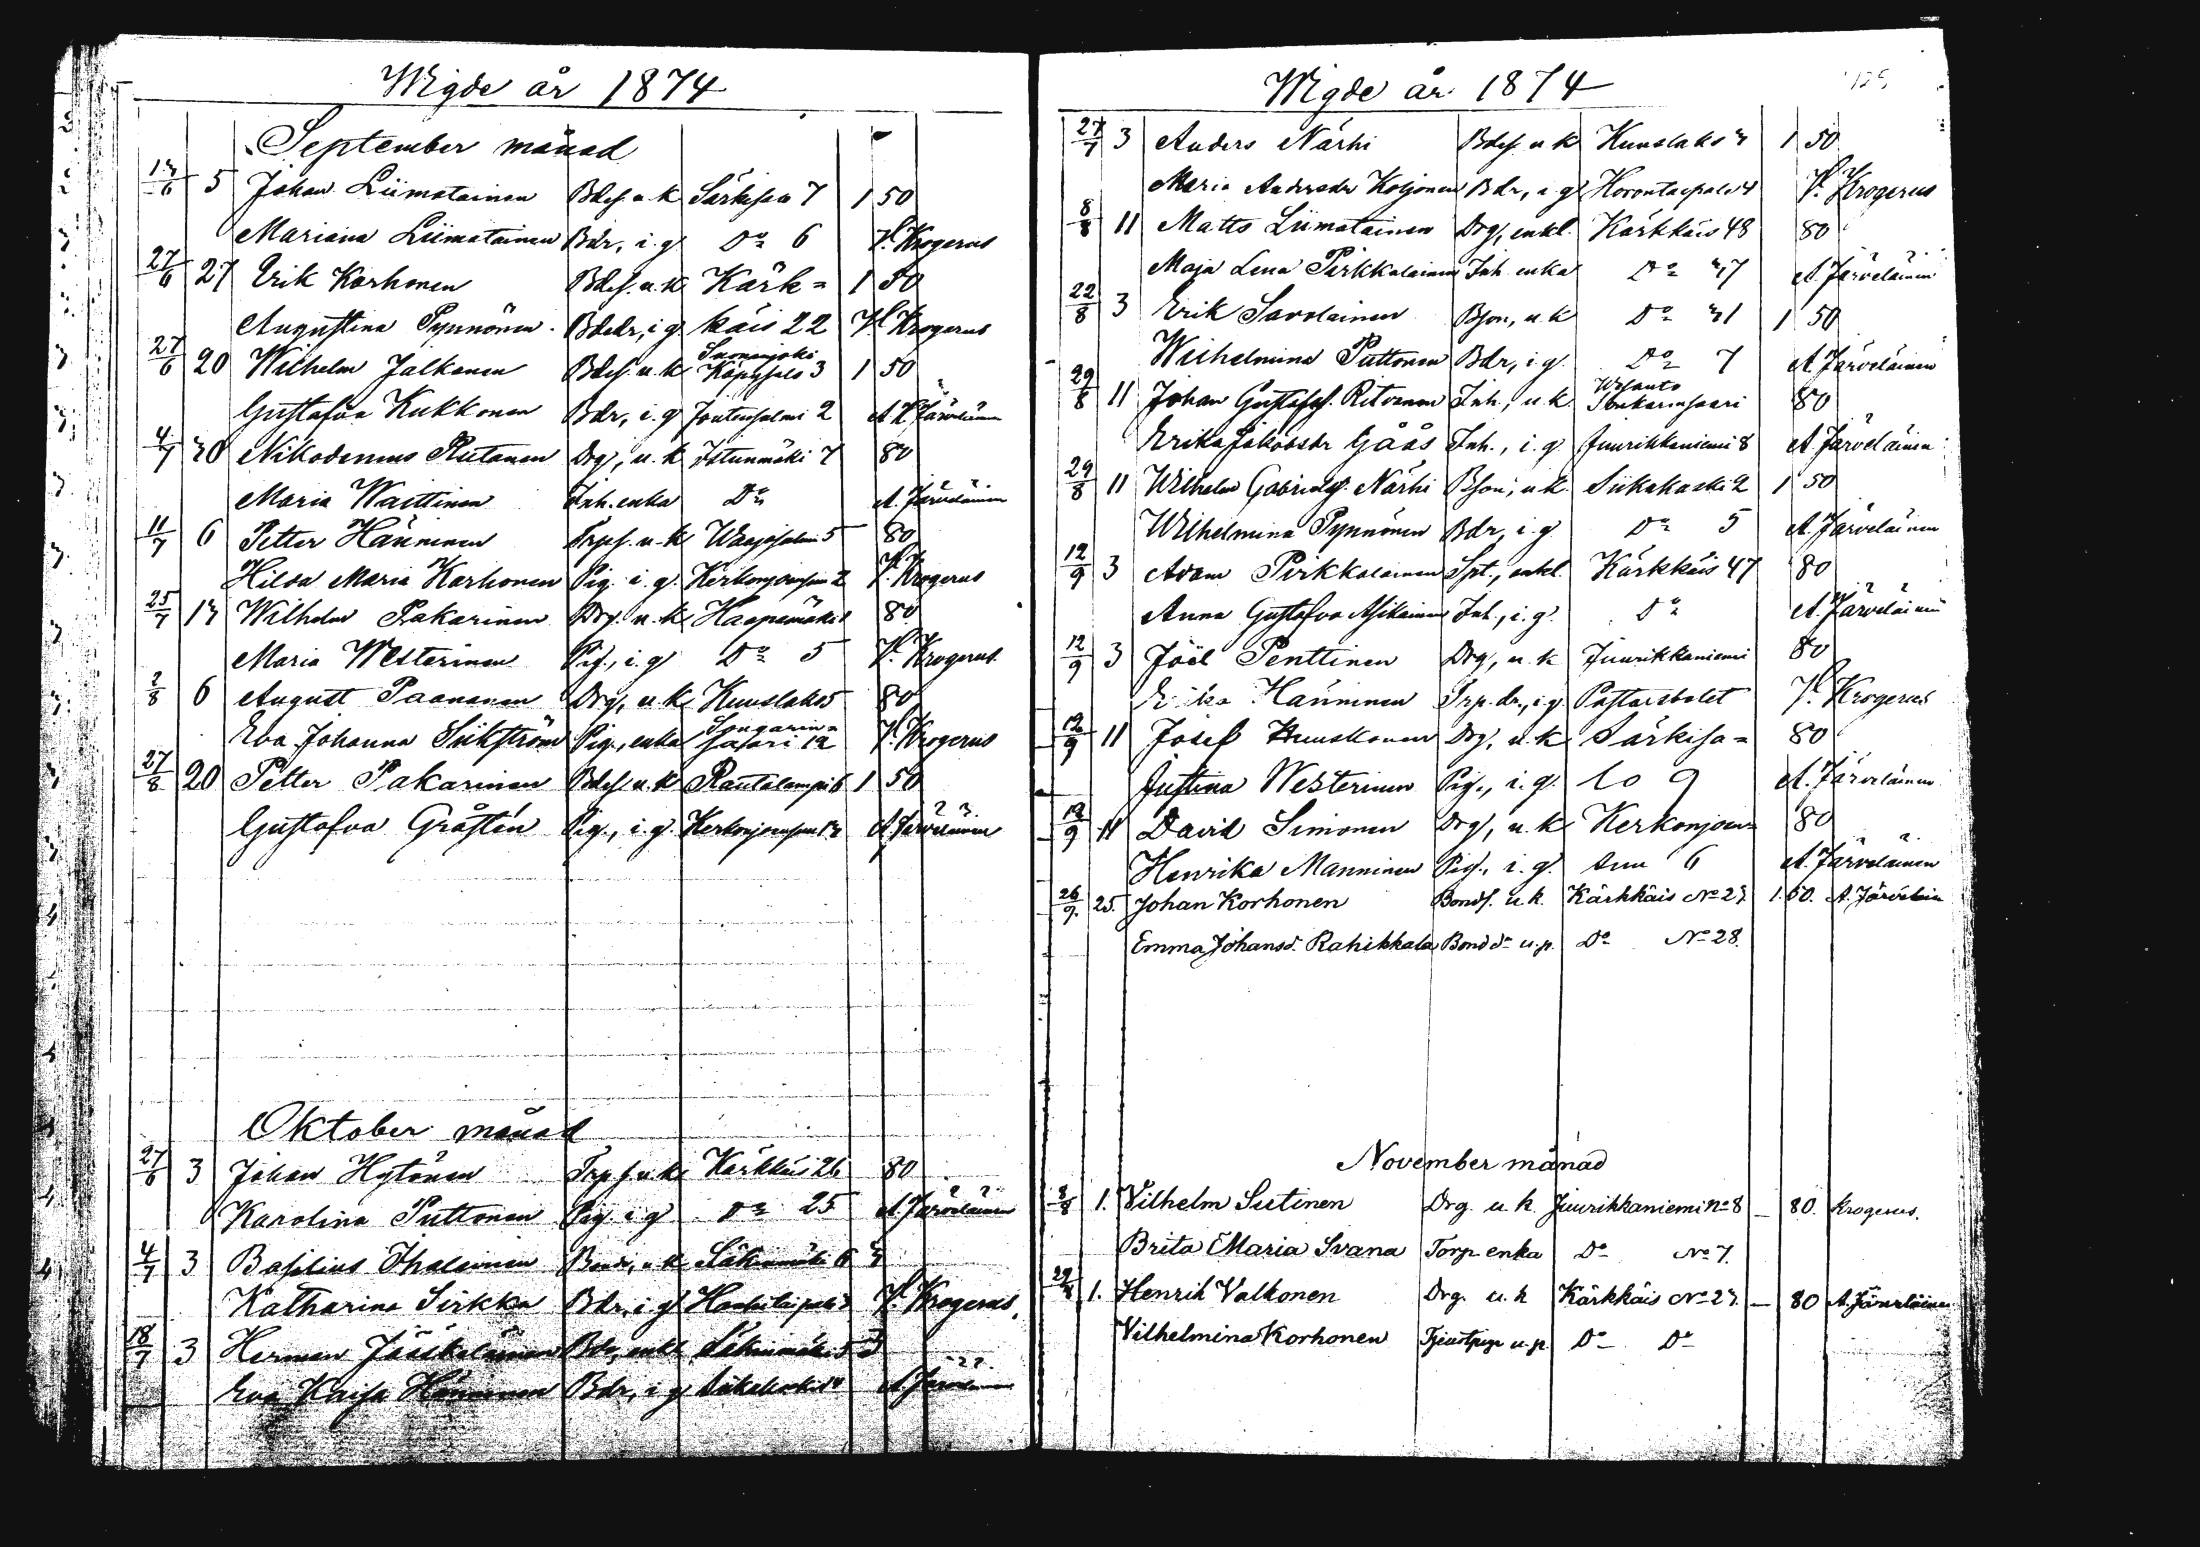 Wigde år 1874
September månad
13/6 5 Johan Liimatainen Bdes. u.k Särkisalo 7 1 50
Mariana Liimatainen Bdr, i.g Do 6 V. Krogerus
27/6 27 Erik Korhonen Bdes. u.k Kärk= 1 50
Augustina Pynnönen Bdedr, i.g käis 22 V. Krogerus
27/6 20 Wilhelm Jalkanen Bdes. u.k Suonenjoki Käpysalo 3 1 50
Gustafva Kukkonen Bdr, i.g Joutensalmi 2 A. Järveläinen
4/7 30 Nikodemus Rutanen Drg, u.k Istunmäki 7 80
Maria Waittinen Inh. enka Do A. Järveläinen
11/7 6 Petter Hänninen Trps. u.k Waajasalmi 5 80
Hilda Maria Korhonen Pig. i.g. Kerkonjoensuu 2 V. Krogerus
25/7 13 Wilhelm Pakarinen Drg. u.k Haapamäki 80
Maria Westerinen Pig., i.g Do 5 V. Krogerus
2/8 6 August Paananen Drg, u.k Kuuslaks 5 80
Eva Johanna Siikström Pig., enka Songarin= saari 12 V. Krogerus
27/8 20 Petter Pakarinen Bdes. u.k Rautalampi 6 1 50
Gustafva Gråstén Pig., i.g. Kerkonjoensuu 13 A. Järveläinen
Oktober månad
27/6 3 Johan Hytönen Trp s. u.k Kärkkäis 26 80
Karolina Puttonen Pig. i.g Do 25 A. Järveläinen
4/7 3 Basilius Ihalainen Bonde, u.k Läkinmäki 6 3
Katharina Sirkka Bdr, i.g V. Krogerus
18/7 3 Herman Jääskeläinen Bde, enkl Läkinmäki 5 3
Eva Kaisa Hänninen Bdr, i.g Siikakoski 4 A. Järveläinen
Wigde år 1874
27/7 3 Anders Närhi Bdes. u.k Kuuslaks 3 1 50
Maria Andersdr Koljonen Bdr, i.g Korontaipale 4 V. Krogerus
8/8 11 Matts Liimatainen Drg, enkl. Kärkkäis 48 80
Maja Lena Pirkkalainen Inh enka Do 37 A. Järveläinen
22/8 3 Erik Savolainen Bson, u.k Do 31 1 50
Wilhelmina Puttonen Bdr, i.g. Do 7 A. Järveläinen
29/8 11 Johan Gustafss. Ritvanen Inh., u.k Wesanto Tonkarinsaari 80
Erika Jakobsdr Gåås Inh., i.g Juurikkaniemi 8 A. Järveläinen
29/8 11 Wilhelm Gabrielss. Närhi Bson, u.k Siikakoski 2 1 50
Wilhelmina Pynnönen Bdr, i.g Do 5 A. Järveläinen
12/9 3 Adam Pirkkalainen Spt., enkl. Kärkkäis 47 80
Anna Gustafva Asikainen Inh., i.g. Do A. Järveläinen
12/9 3 Joël Penttinen Drg, u.k Juurikkaniemi 80
Erika Hänninen Trp. dr., i.g Pastorsbolet V. Krogerus
12/9 11 Josef Kuuskonen Drg, u.k Särkisa= 80
Justina Westerinen Pig., i.g. lo 9 A. Järveläinen
12/9 11 David Simonen Drg, u.k Kerkonjoen= 80
Henrika Manninen Pig., i.g. suu 6 A. Järveläinen
26/9. 25. Johan Korhonen Bonds. u.k. Kärkkäis No 23. 1.50. A. Järveläin
Emma Johansd. Rahikkala Bond dr u.p. Do No 28.
November månad
8/8 1. Vilhelm Sutinen Drg. u.k. Juurikkaniemi No 8 — 80. Krogerus.
Brita Maria Svana Torp enka Do No 7.
29/8 1. Henrik Valkonen Drg. u.k Kärkkäis No 23. — 80 A. Järveläinen
Vilhelmina Korhonen Tjenstpige u.p. Do Do